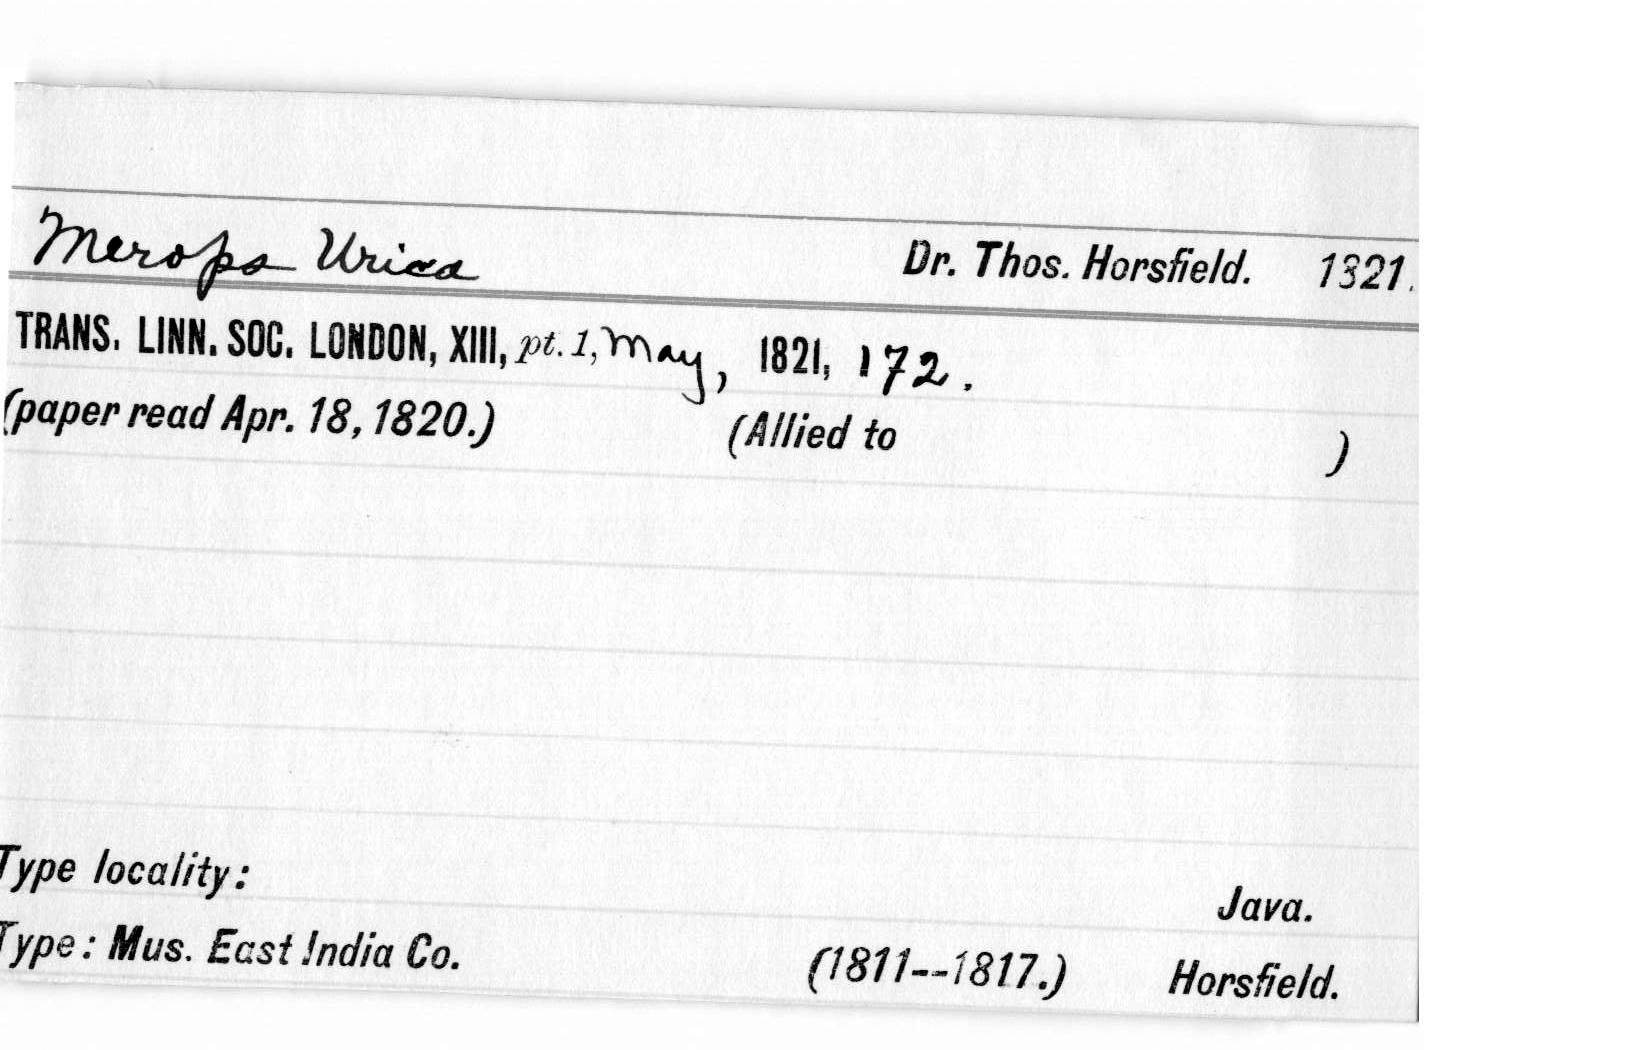 Merops Urica Dr. Thos. Horsfield. 1821.
TRANS. LINN. SOC. LONDON, XIII, pt. 1, May, 1821, 172.
(paper read Apr. 18, 1820.) (Allied to )
Type locality: Java.
Type: Mus. East India Co. (1811--1817.) Horsfield.